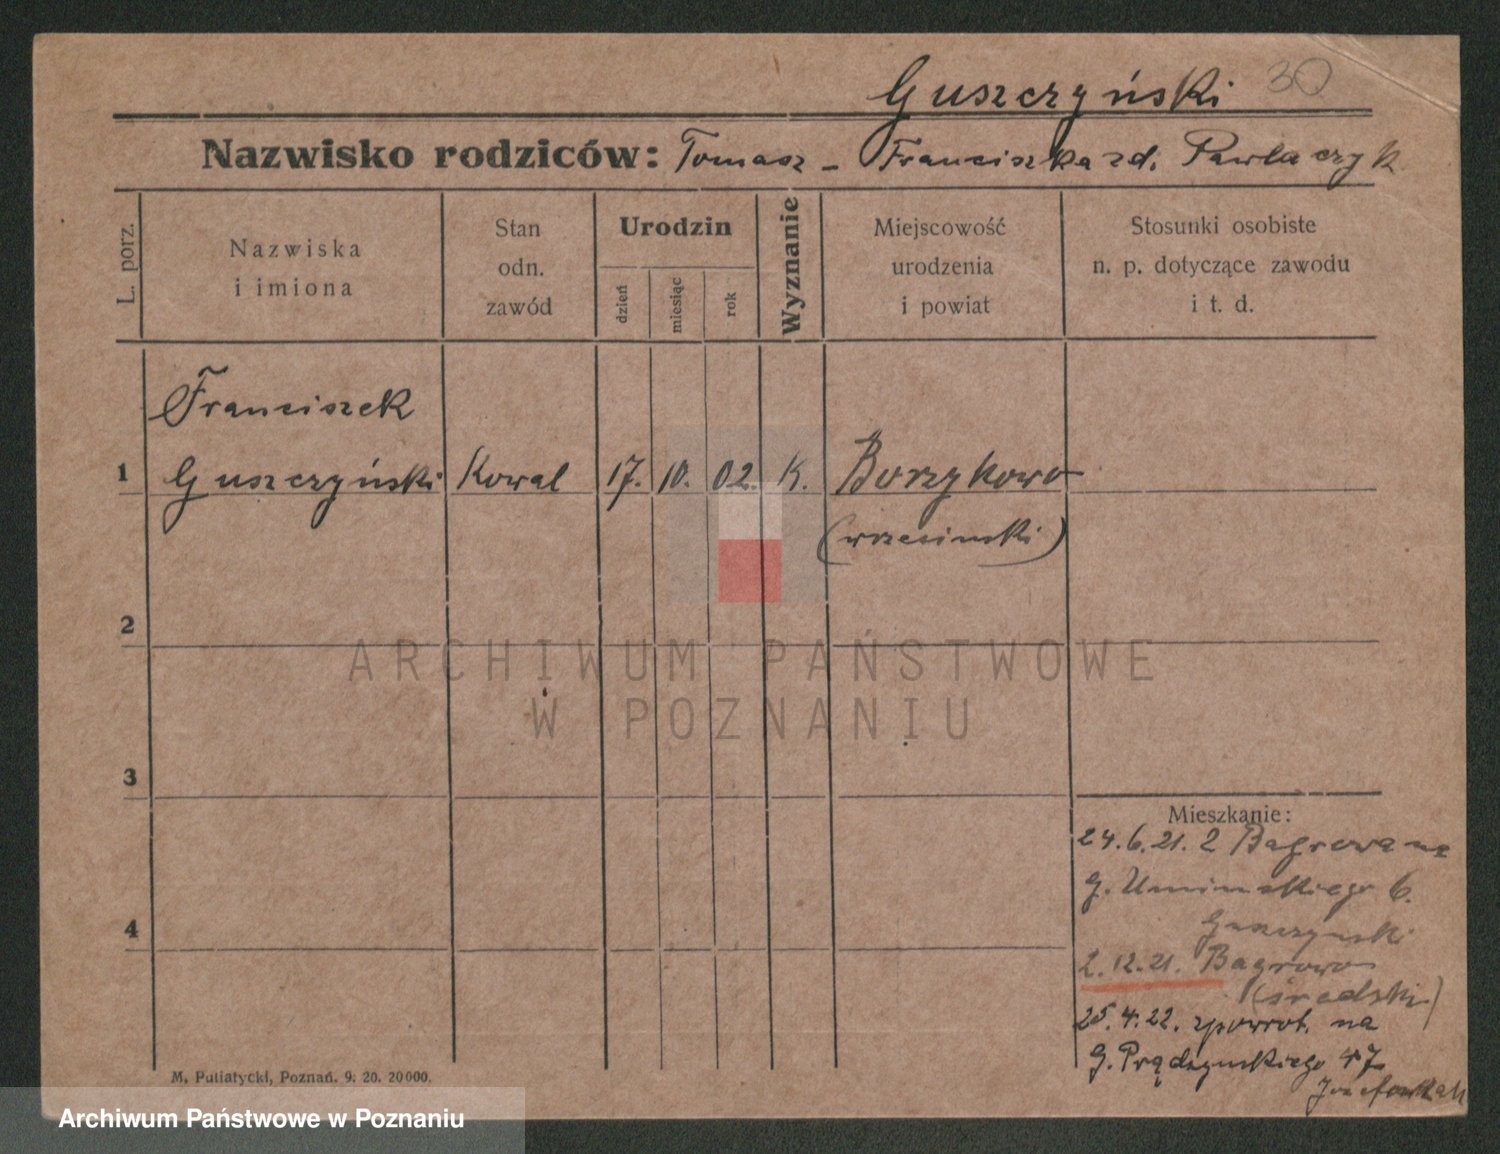 Guszczyński 30
Nazwisko rodziców: Tomasz - Franciszka zd. Pawlaczyk
L. porz.
Nazwiska
i imiona
Stan
odn.
zawód
Urodzin
dzień
miesiąc
rok
Wyznanie
Miejscowość
urodzenia
i powiat
Stosunki osobiste
n. p. dotyczące zawodu
i t. d.
Franciszek
1 Guszczyński Kowal 17. 10. 02. K. Borzykowo
(wrzesinski)
2
ARCHIWUM PAŃSTWOWE
W POZNANIU
3
Mieszkanie:
24.6.21. z Bagrowa na
G. Uminskiego 6.
Guszczynski
4
2.12.21. Bagrowo
(sredzki)
25.4.22. zpowrot. na
G. Prądzynskiego 47
M. Putiatycki, Poznań. 9. 20. 20000.
Archiwum Państwowe w Poznaniu